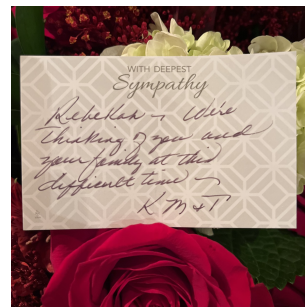 WITH DEEPEST
Sympathy
Rebekah ~ We're
thinking of you and
your family at this
difficult time ~
K M & T